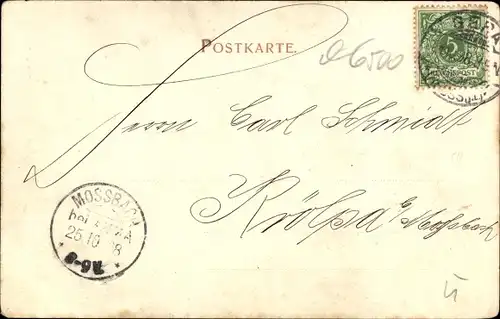 POSTKARTE.
6500
5
REICHSPOST
Herrn Carl Schmidt
Krölpa b/Mossbach
MOSSBACH
25.10 98
8-9N